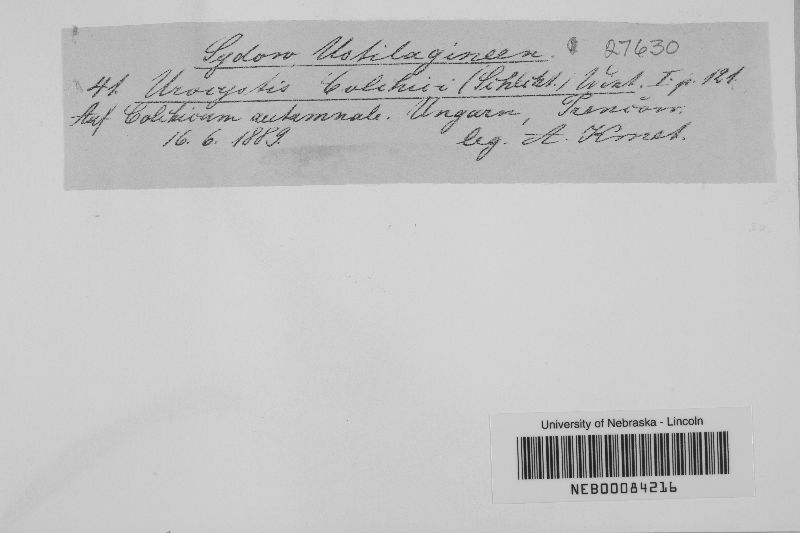 Sydow, Ustilagineen. 27630
41. Urocystis Colchici (Schlcht.) Wint. I. p. 121.
Auf Colchicum autumnale. Ungarn, Trencsin.
16. 6. 1889. leg. A. Kmet.
University of Nebraska - Lincoln
NEB00084216